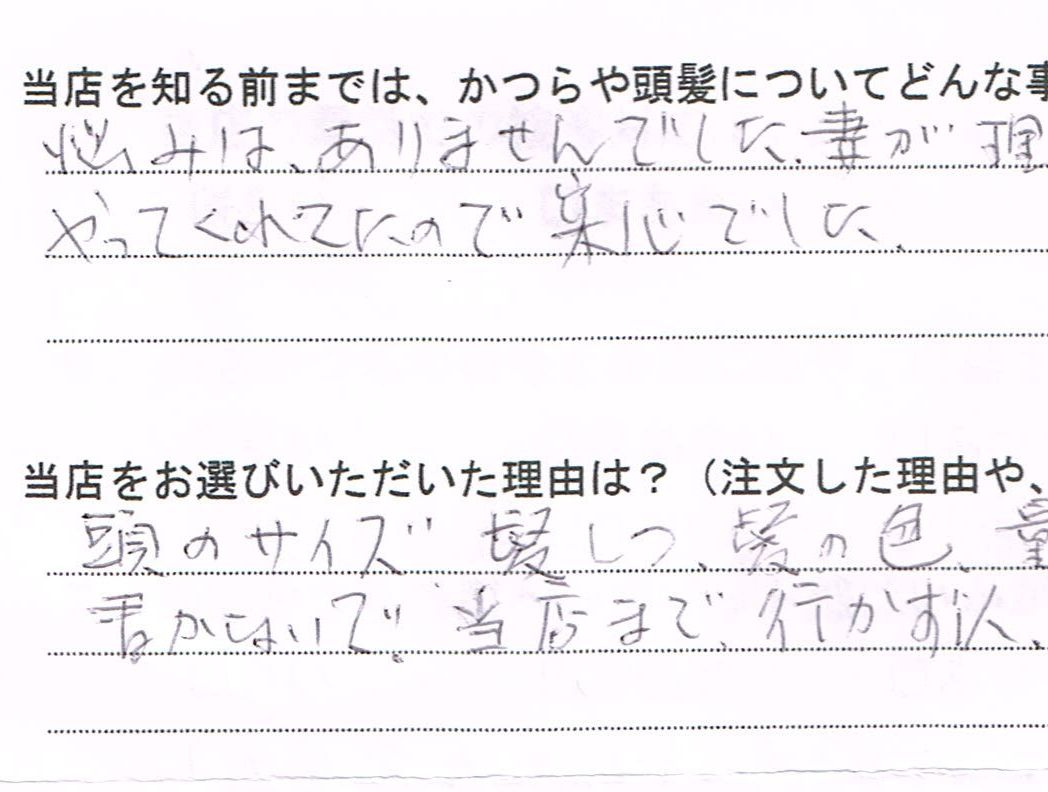 当店を知る前までは、かつらや頭髪についてどんな事
悩みは、ありませんでした、妻が理
やってくれてたので、楽心でした、
当店をお選びいただいた理由は？（注文した理由や、
頭のサイズ、髪しつ、髪の色、量
書かないで、当店まで、行かず